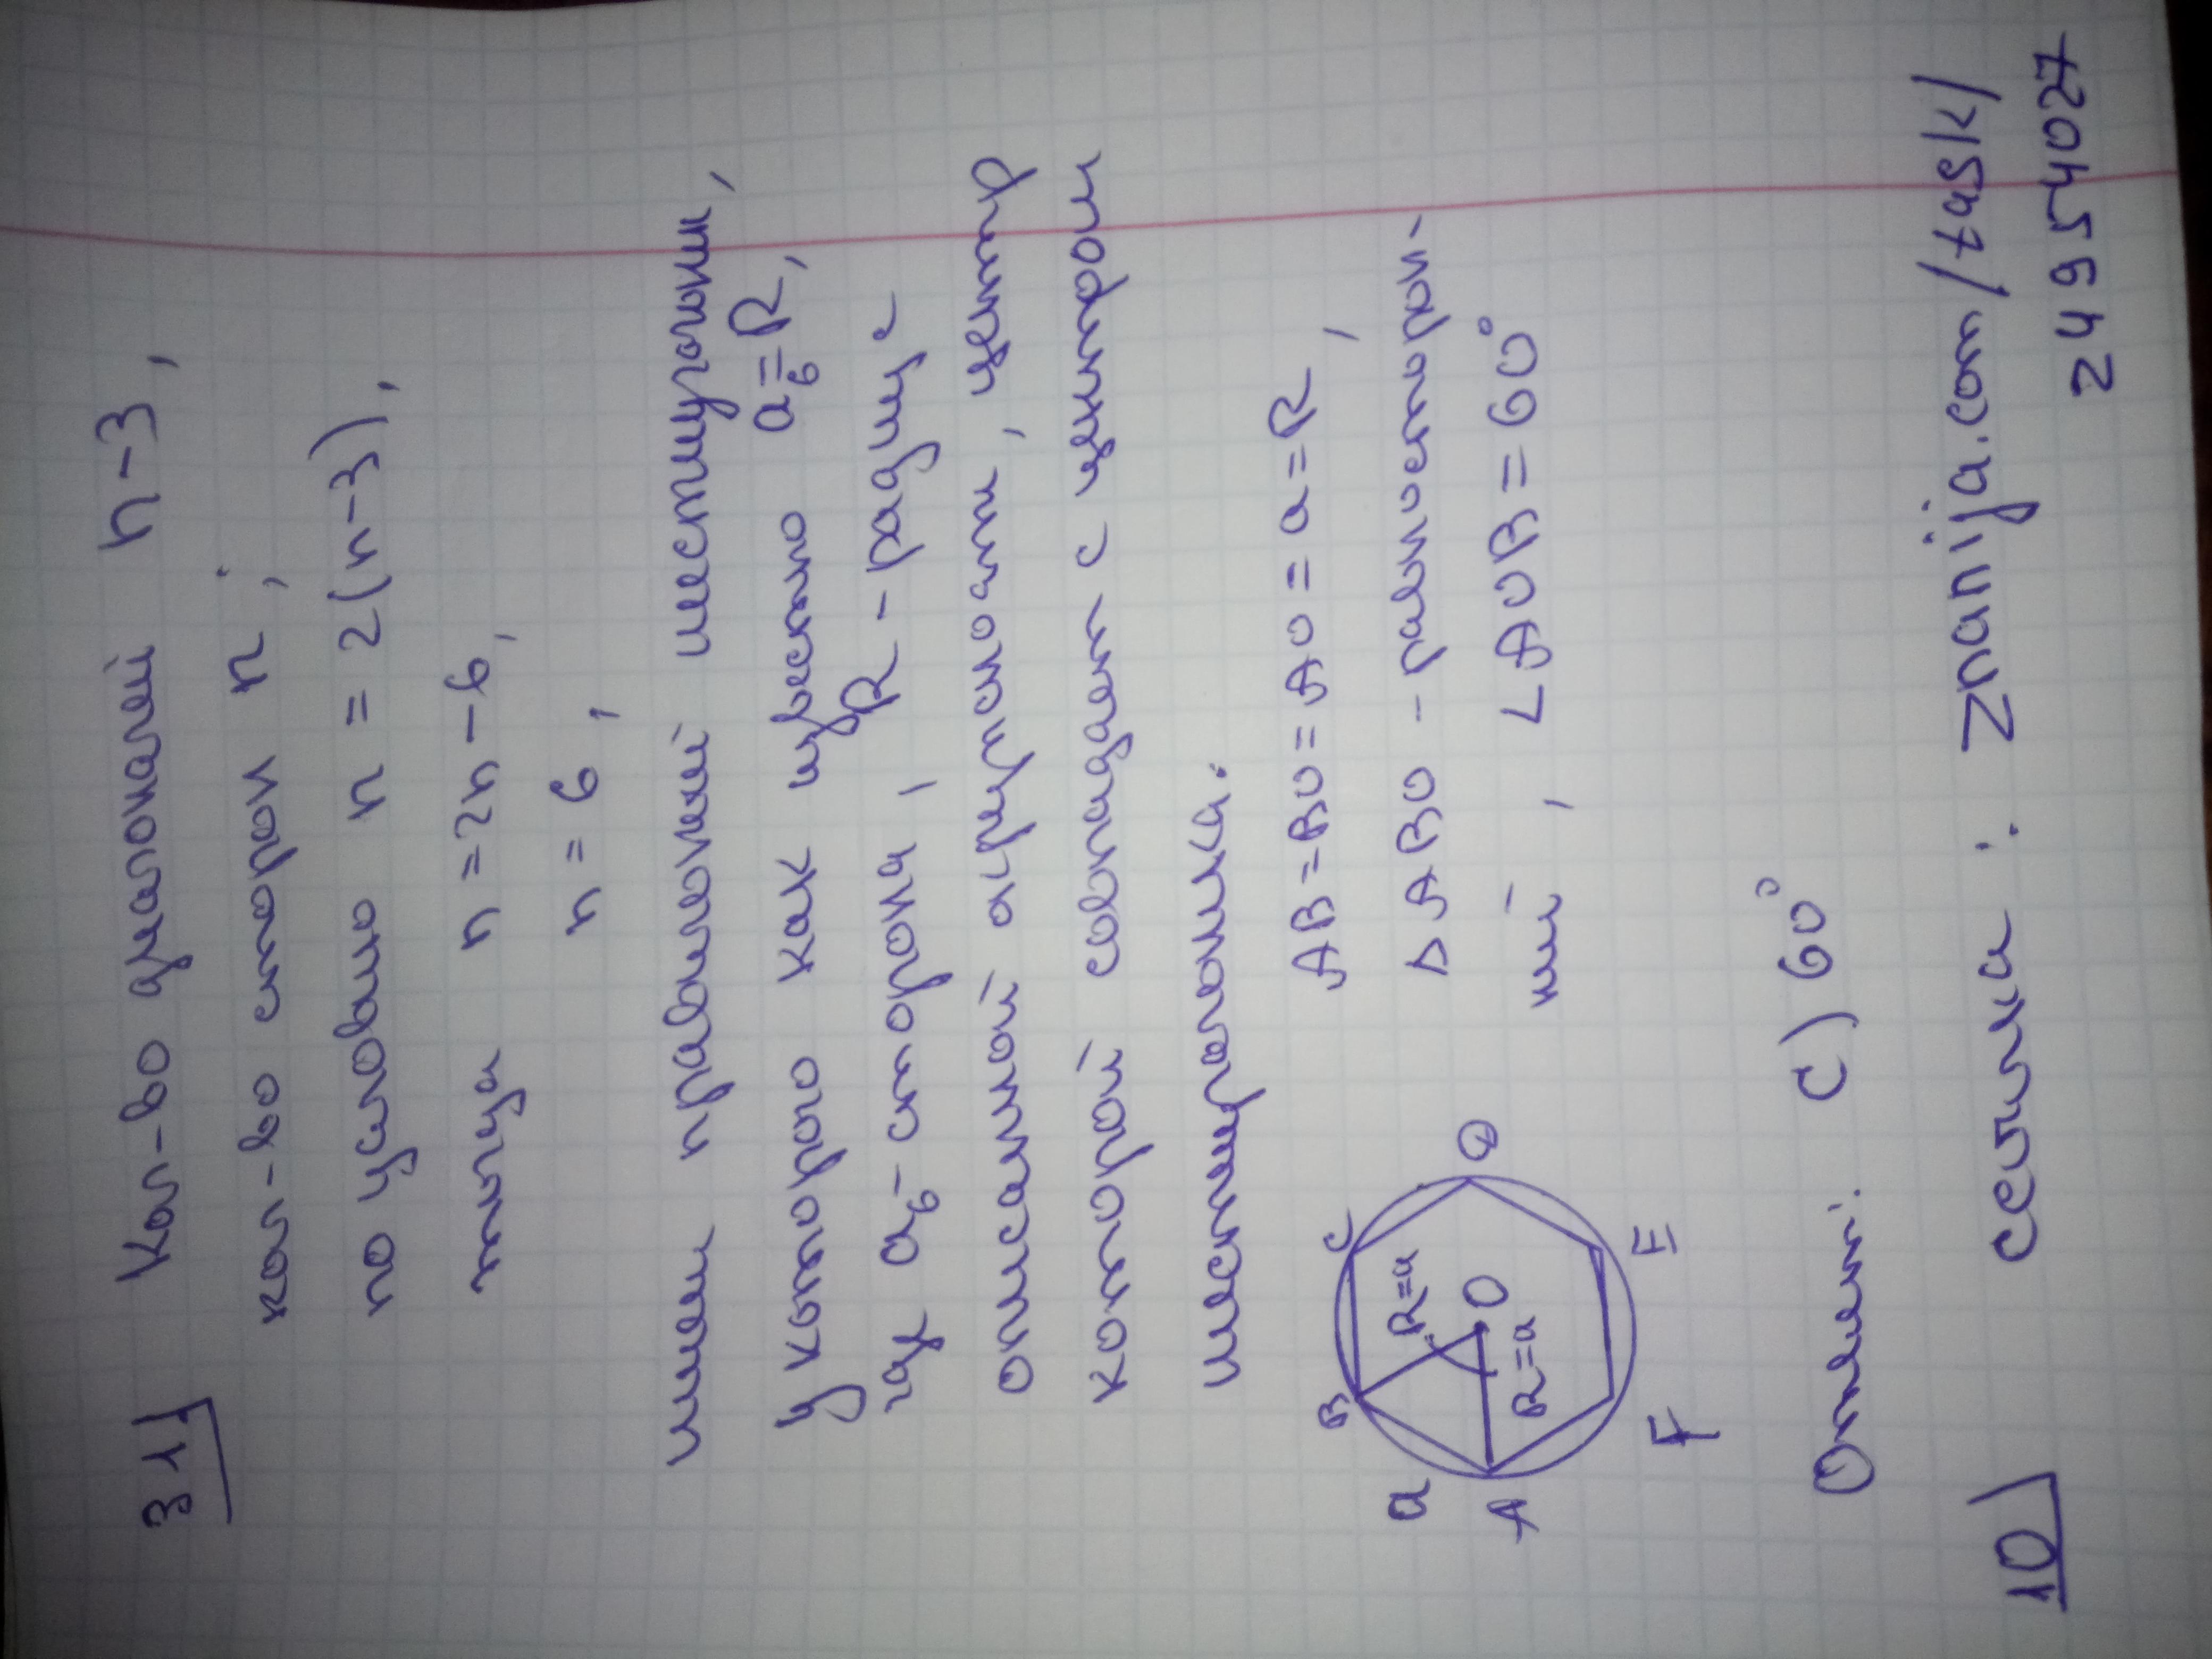 31
Кол-во диагоналей n-3,
кол-во сторон n;
по условию n = 2(n-3),
n = 2n-6,
n = 6,
правильный шестиугольник,
у которого как известно a₆=R,
где a₆-сторона, R-радиус
описанной окружности, центр
которой совпадает с центром
шестиугольника.
AB=BO=AO=a=R,
ΔABO - равносторон-
ний, ∠AOB=60°
B C D E F A O
a R=a R=a
Ответ: C) 60°
10
ссылка: znanija.com/task/
24954027